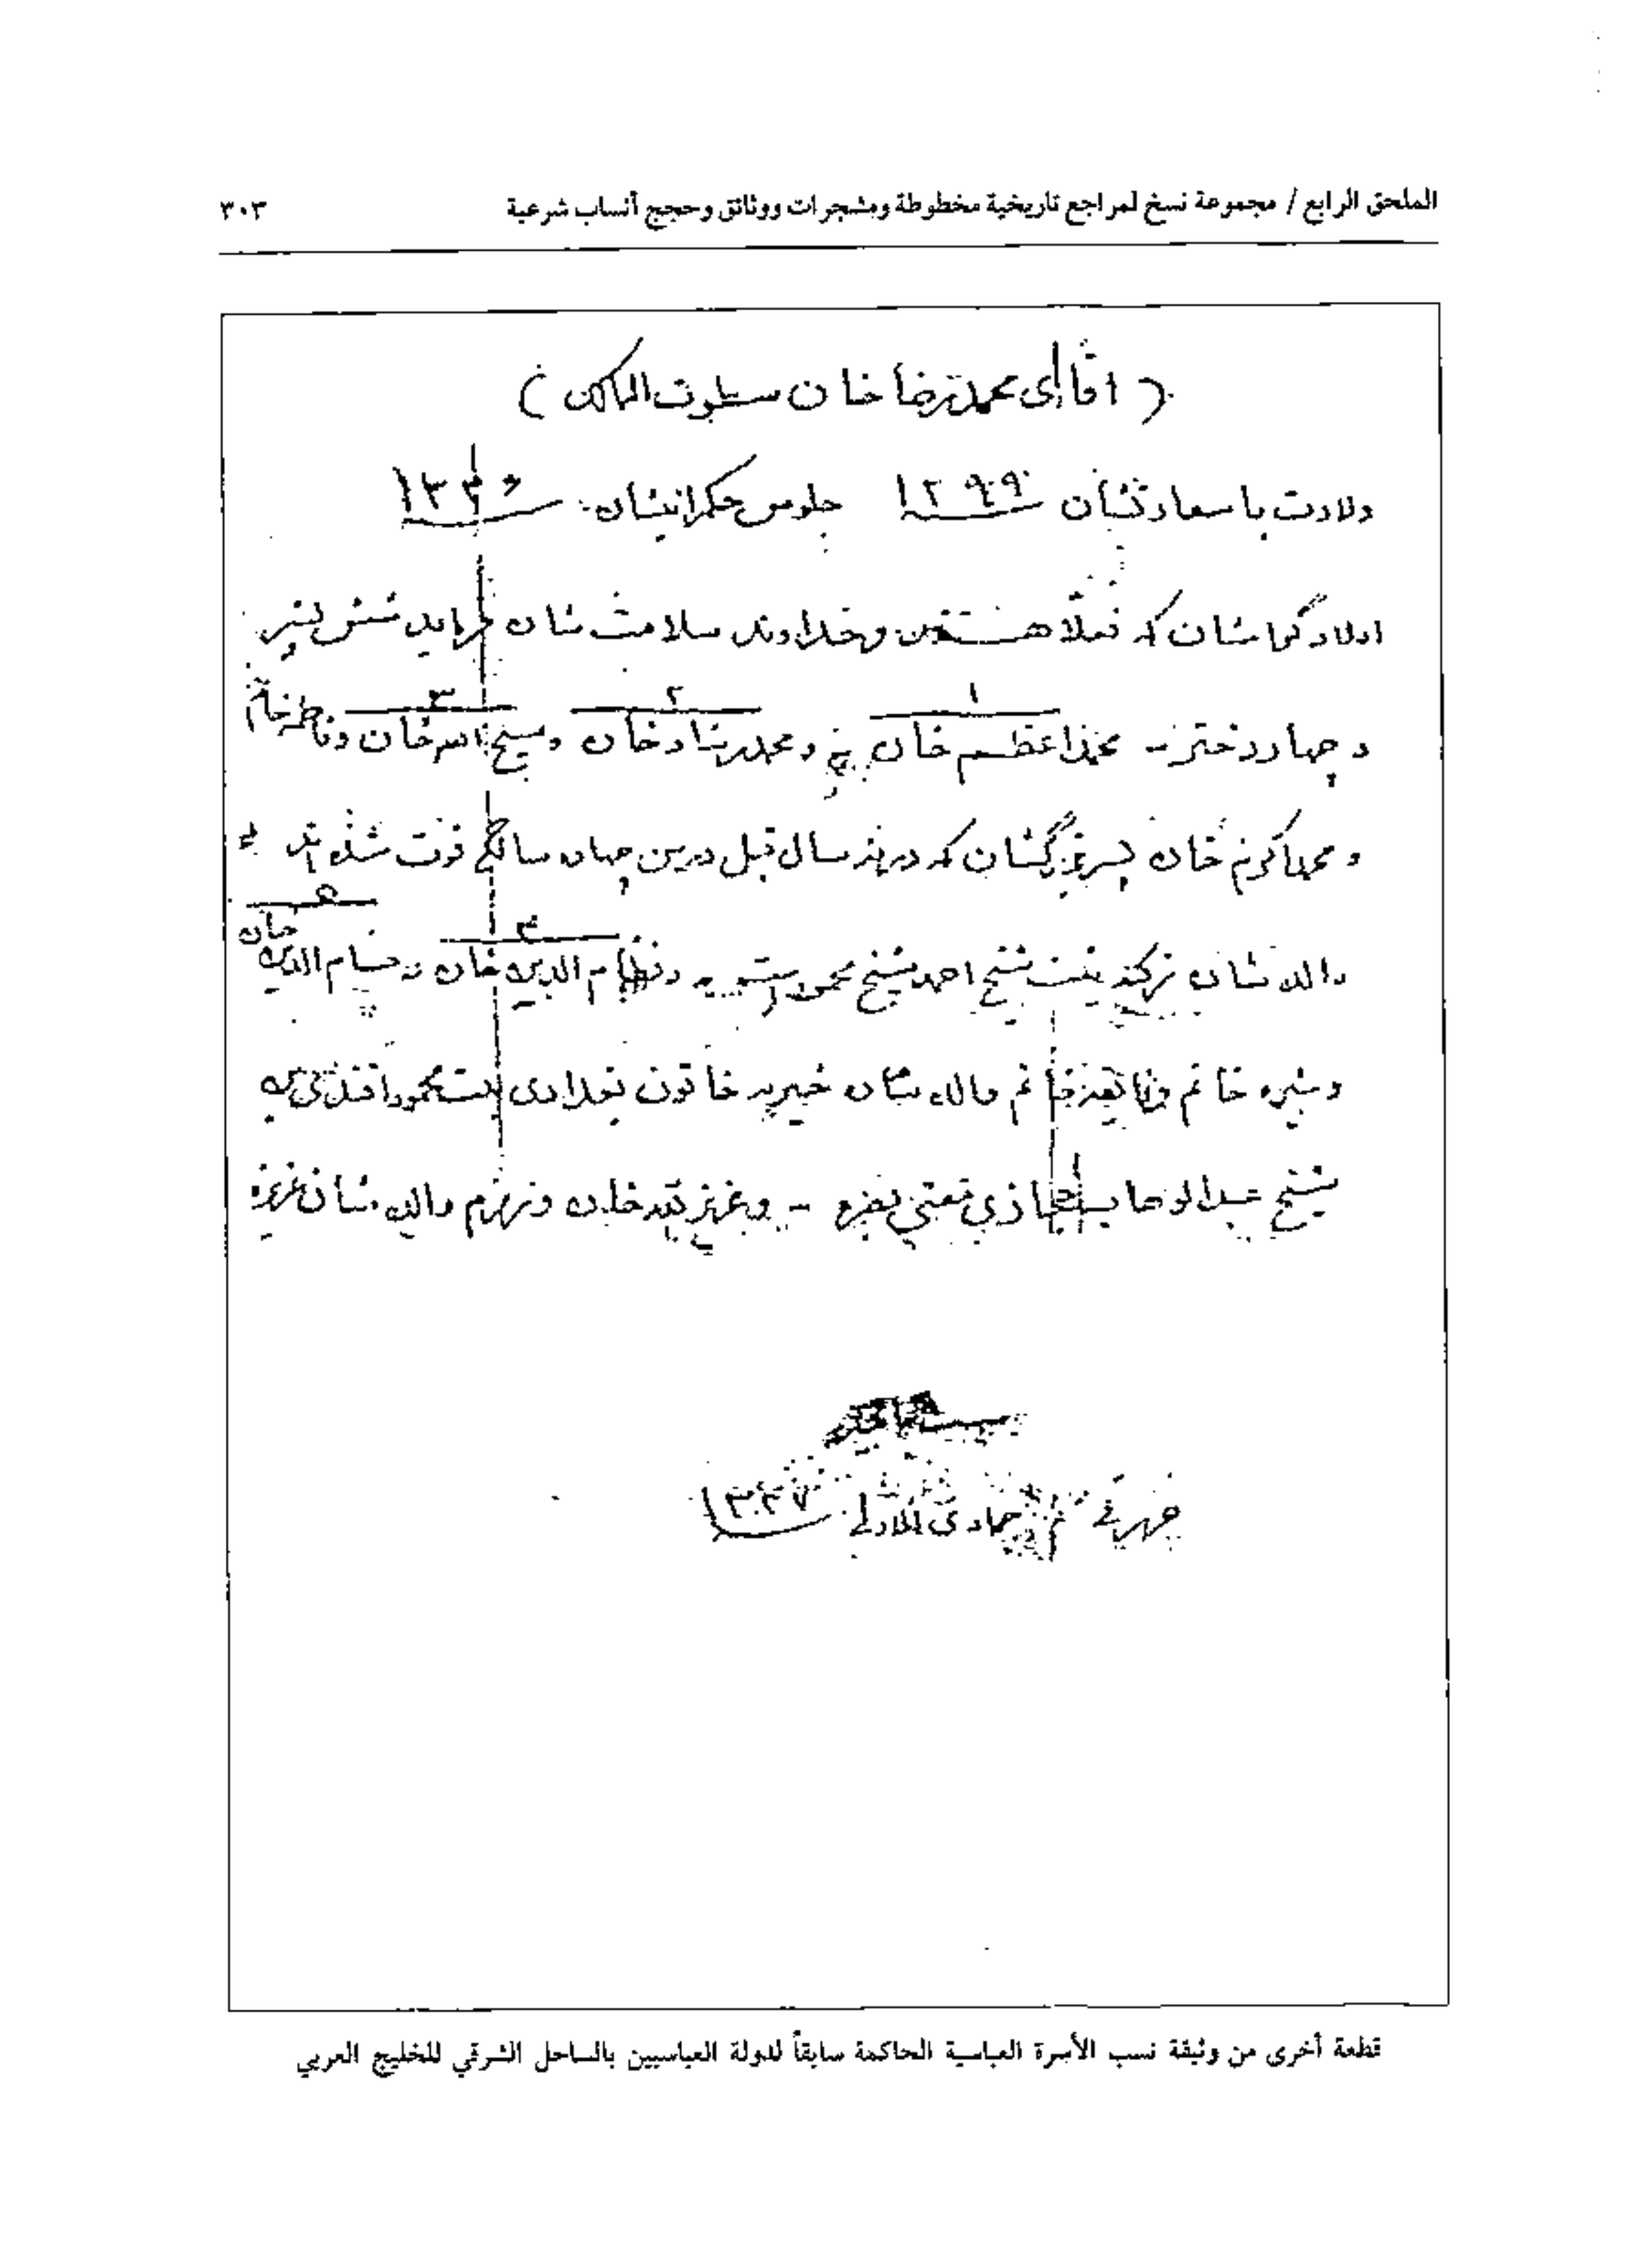 الملحق الرابع / مجموعة نسخ لمراجع تاريخية مخطوطة ومشجرات ووثائق وحجج أنساب شرعية ٣٠٣
( اقاى محمد رضا خان سطوت الممالك )
ولادت با سعادتشان ١٢٩٩ جلوس حكمرانيشان
اولاد كه فعلا هستند خداوند سلامت شان فرمايد شش پسر
١ ٢ ٣
و چهار دختر - محمد اعظم خان و محمد رشاد خان و مسيح الله خان و
و محمد اكرم خان پسر بزرگشان كه در سال قبل درين جهان فوت شده اند
٤ ٥
والده شان بنت شيخ احمد شيخ محمود و نظام الدين خان و حسام الدين خان
و منيره خانم و خانم والده شان خيريه خاتون بغدادى بنت محمود افندى
شيخ عبد الوهاب حجازي مفتي بصره - و عزيز خان و والده شان
في جمادى الاولى
قطعة أخرى من وثيقة نسب الأسرة العباسية الحاكمة سابقاً لدولة العباسيين بالساحل الشرقي للخليج العربي